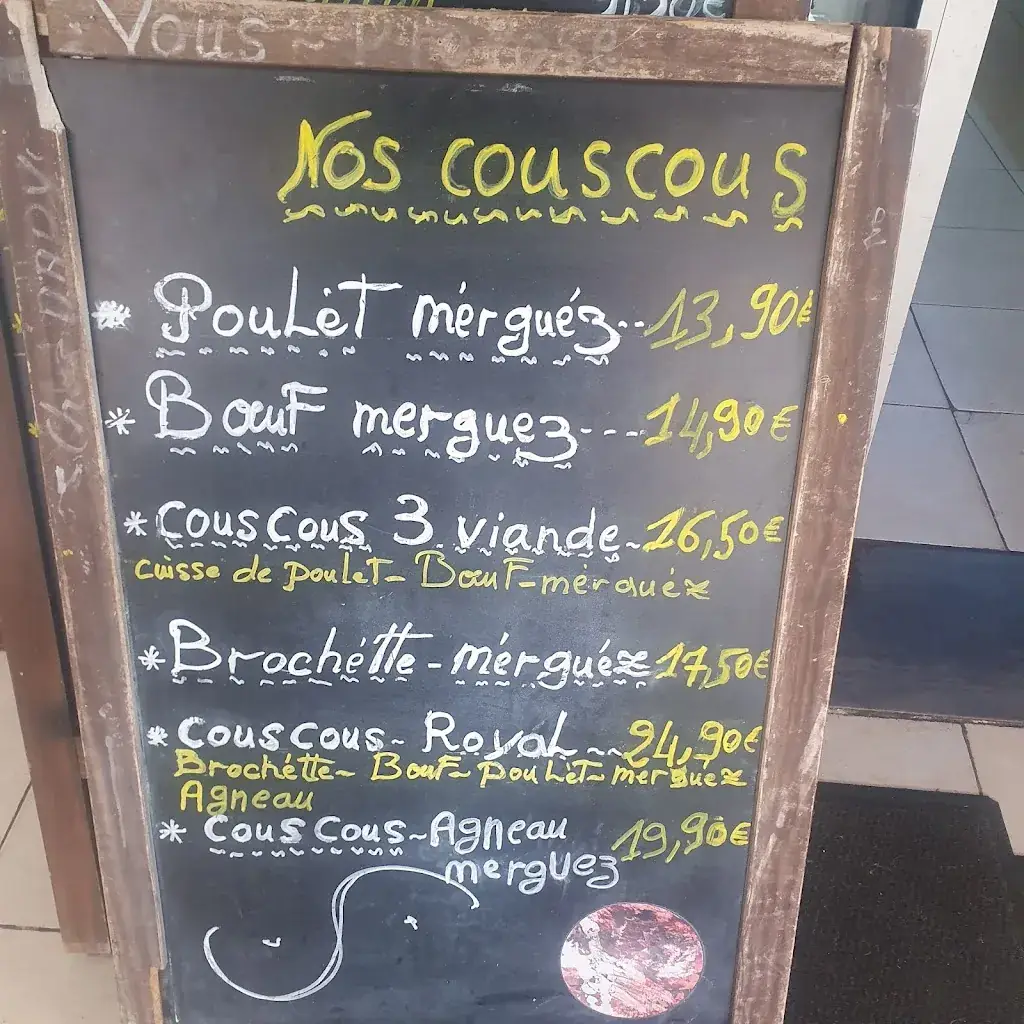 Vous ~ propose
Nos couscous
* Poulèt mérguéz-- 13,90€
* Bœuf merguez--- 14,90€
* couscous 3 viande~ 16,50€
cuisse de poulet- Bœuf-mérguéz
* Brochétte - mérguéz 17,50€
* couscous~ Royal ~~ 24,90€
Brochétte~ Bœuf~ poulèt~ merguez
Agneau
* couscous~Agneau 19,90€
merguez